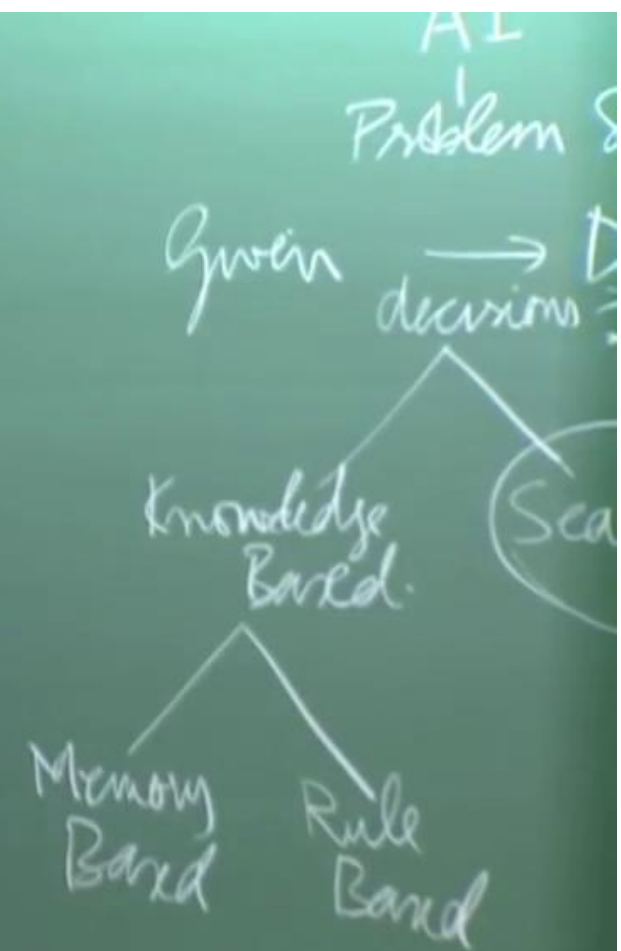 AI
Problem
Given
decisions
Knowledge
Based.
Memory
Based
Rule
Based